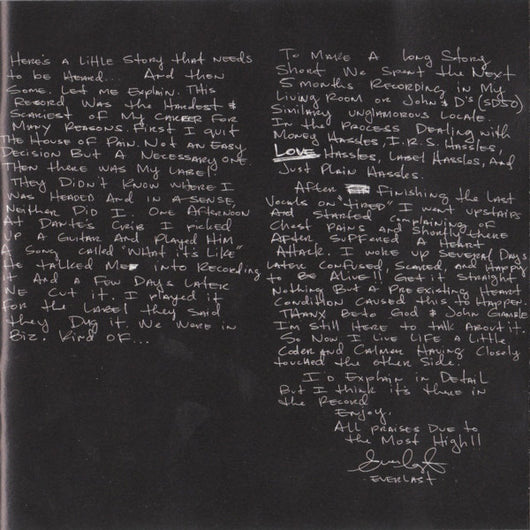 Here's a little story that needs
to be heard... And then
some. Let me explain. This
record was the hardest &
scariest of my career for
many reasons. First I quit
the House of Pain. Not an easy
decision but a necessary one.
Then there was my label
They didn't know where I
was headed and in a sense,
neither did I. One afternoon
at Dante's crib I picked
up a guitar and played him
a song called "What it's Like"
He talked me into recording
it and a few days later
we cut it. I played it
for the label they said
they dug it. We were in
biz. Kind of...
To make a long story
short we spent the next
5 months recording in my
living room or John & D's (SDSO)
similary unglamorous locale.
In the process dealing with
money hassles, I.R.S. hassles,
LOVE hassles, label hassles, and
just plain hassles.
After finishing the last
vocals on "Tired" I went upstairs
and started complaining of
chest pains and shortly there
after suffered a heart
attack. I woke up several days
later confused, scared, and happy
to be alive. Get it straight!
Nothing but a preexisting heart
condition caused this to happen.
Thanx be to God & John Gamble
I'm still here to talk about it.
So now I live life a little
colder and calmer having closely
touched the other side.
I'd explain in detail
but I think it's there in
the record
Enjoy.
All praises due to
the Most High!!
Everlast
- EVERLAST